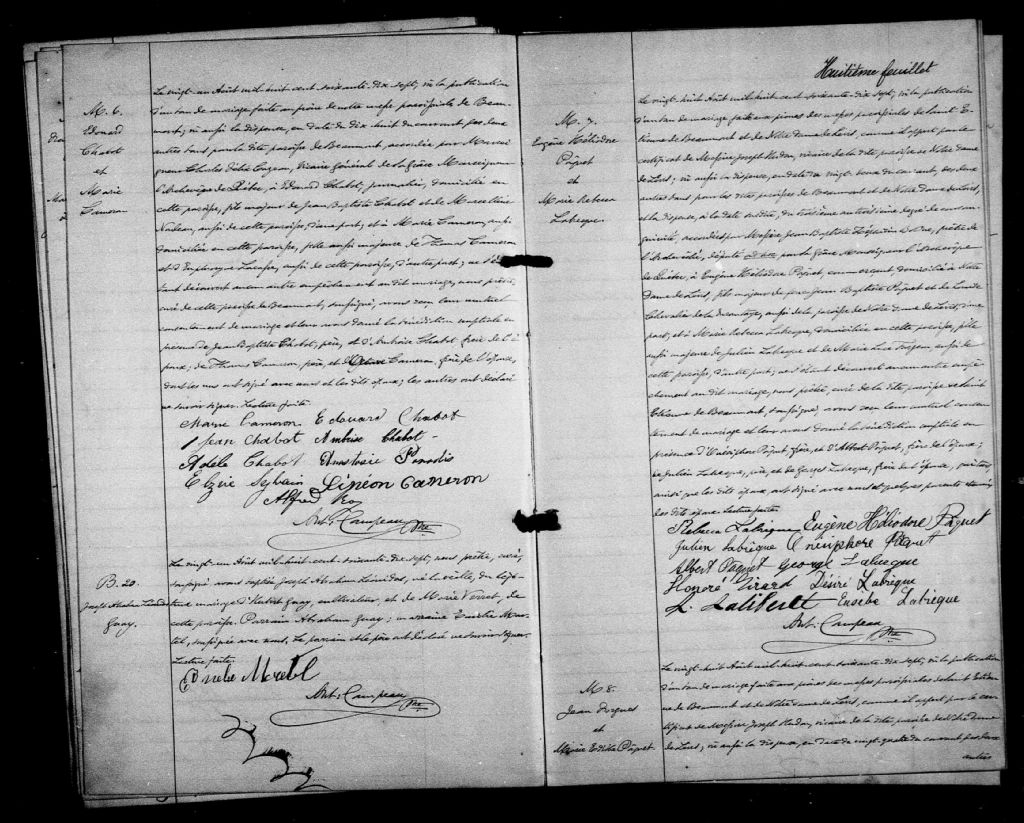 M. 6.
Edouard
Chabot
et
Marie
Cameron
Le vingt-un Août mil-huit cent soixante-dix-sept, vû la publication
d'un ban de mariage faite au prône de notre messe paroissiale de Beau-
mont; vû aussi la dispense, en date du dix-huit du courant, des deux
autres bans pour la dite paroisse de Beaumont, accordée par Monsei-
gneur Charles Félix Cazeau, Vicaire Général de Sa Grâce Monseigneur
l'Archevêque de Québec, à Edouard Chabot, domicilié en
cette paroisse, fils majeur de Jean Baptiste Chabot et de Marcelline
Nadeau, aussi de cette paroisse, d'une part; et à Marie Cameron, aussi
domiciliée en cette paroisse, fille aussi majeure de Thomas Cameron
et d'Euphrosine aussi de cette paroisse, d'autre part; ne s'é-
tant découvert aucun autre empêchement au dit mariage, nous prêtre,
curé de cette paroisse de Beaumont, soussigné, avons reçu leur mutuel
consentement de mariage et leur avons donné la bénédiction nuptiale en
présence de Jean Baptiste Chabot, père, et d'Ambroise Chabot frère de l'é-
poux; de Thomas Cameron père et d' Cameron, frère de l'épouse,
dont les uns ont signé avec nous et les dits époux; les autres ont déclaré
ne savoir signer. Lecture faite.
Marie Cameron Edouard Chabot
Jean Chabot Ambrise Chabot
Adèle Chabot Anastasie Paradis
Elzéar Sylvain Siméon Cameron
Alfred Roy
Ant: Campeau Ptre
B. 20.
Joseph Abraham Léonidas
Guay.
Le vingt-un Août mil-huit-cent-soixante-dix-sept, nous prêtre, curé,
soussigné avons baptisé Joseph Abraham Léonidas, né la veille, du légi-
time mariage d'Hubert Guay, cultivateur, et de Marie de
cette paroisse. Parrain Abraham Guay; marraine
soussignée avec nous. Le parrain et le père ont déclaré ne savoir signer.
Lecture faite.
Ant: Campeau Ptre
Huitième feuillet
M. 7.
Eugène Héliodore
Pâquet
et
Marie Rebecca
Labrecque.
Le vingt-huit Août mil-huit-cent-soixante-dix-sept, vû la publication
d'un ban de mariage faite aux prônes des messes paroissiales de Saint-Eti-
enne de Beaumont et de Notre Dame de Lévis, comme il appert par le
certificat de Messire Joseph Hudon, vicaire de la dite paroisse de Notre Dame
de Lévis; vû aussi la dispense, en date du vingt-deux du courant, des deux
autres bans pour les dites paroisses de Beaumont et de Notre Dame de Lévis,
et la dispense, à la date susdite, du troisième au troisième degré de consan-
guinité, accordées par Messire Jean Baptiste prêtre de
l'Archevêché, député par Sa Grâce Monseigneur l'Archevêque
de Québec, à Eugène Héliodore Pâquet, commerçant, domicilié à Notre
Dame de Lévis, fils majeur de Jean Baptiste Pâquet et de Louise
Chevalier aussi de la paroisse de Notre Dame de Lévis, d'une
part; et à Marie Rebecca Labrecque, domiciliée en cette paroisse, fille
aussi majeure de Julien Labrecque et de Marie Luce Turgeon aussi de
cette paroisse, d'autre part; ne s'étant découvert aucun autre empê-
chement au dit mariage, nous prêtre, curé de la dite paroisse de Saint
Etienne de Beaumont, soussigné, avons reçu leur mutuel consen-
tement de mariage et leur avons donné la bénédiction nuptiale en
présence d'Onésiphore Pâquet, frère, et d'Albert Pâquet, frère de l'époux;
de Julien Labrecque, père, et de Georges Labrecque, frère de l'épouse,
ainsi que les dits époux ont signé avec nous et quelques parents
des dits époux. Lecture faite.
Rebecca Labrèque Eugène Héliodore Pâquet
Julien Labrèque Onésiphore Pâquett
Albert Paquet George Labrecque
Honoré Girard Désiré Labrèque
L. Labrèque Eusèbe Labrèque
Ant: Campeau Ptre
M. 8.
Jean
et
Marie Edith Pâquet
Le vingt-huit Août mil-huit-cent-soixante-dix-sept, vû la publication
d'un ban de mariage faite aux prônes des messes paroissiales de Saint Etien-
ne de Beaumont et de Notre Dame de Lévis, comme il appert par le cer-
tificat de Messire Joseph Hudon, vicaire de la dite paroisse de Notre Dame
de Lévis; vû aussi la dispense, en date du vingt-quatre du courant, des deux
autres